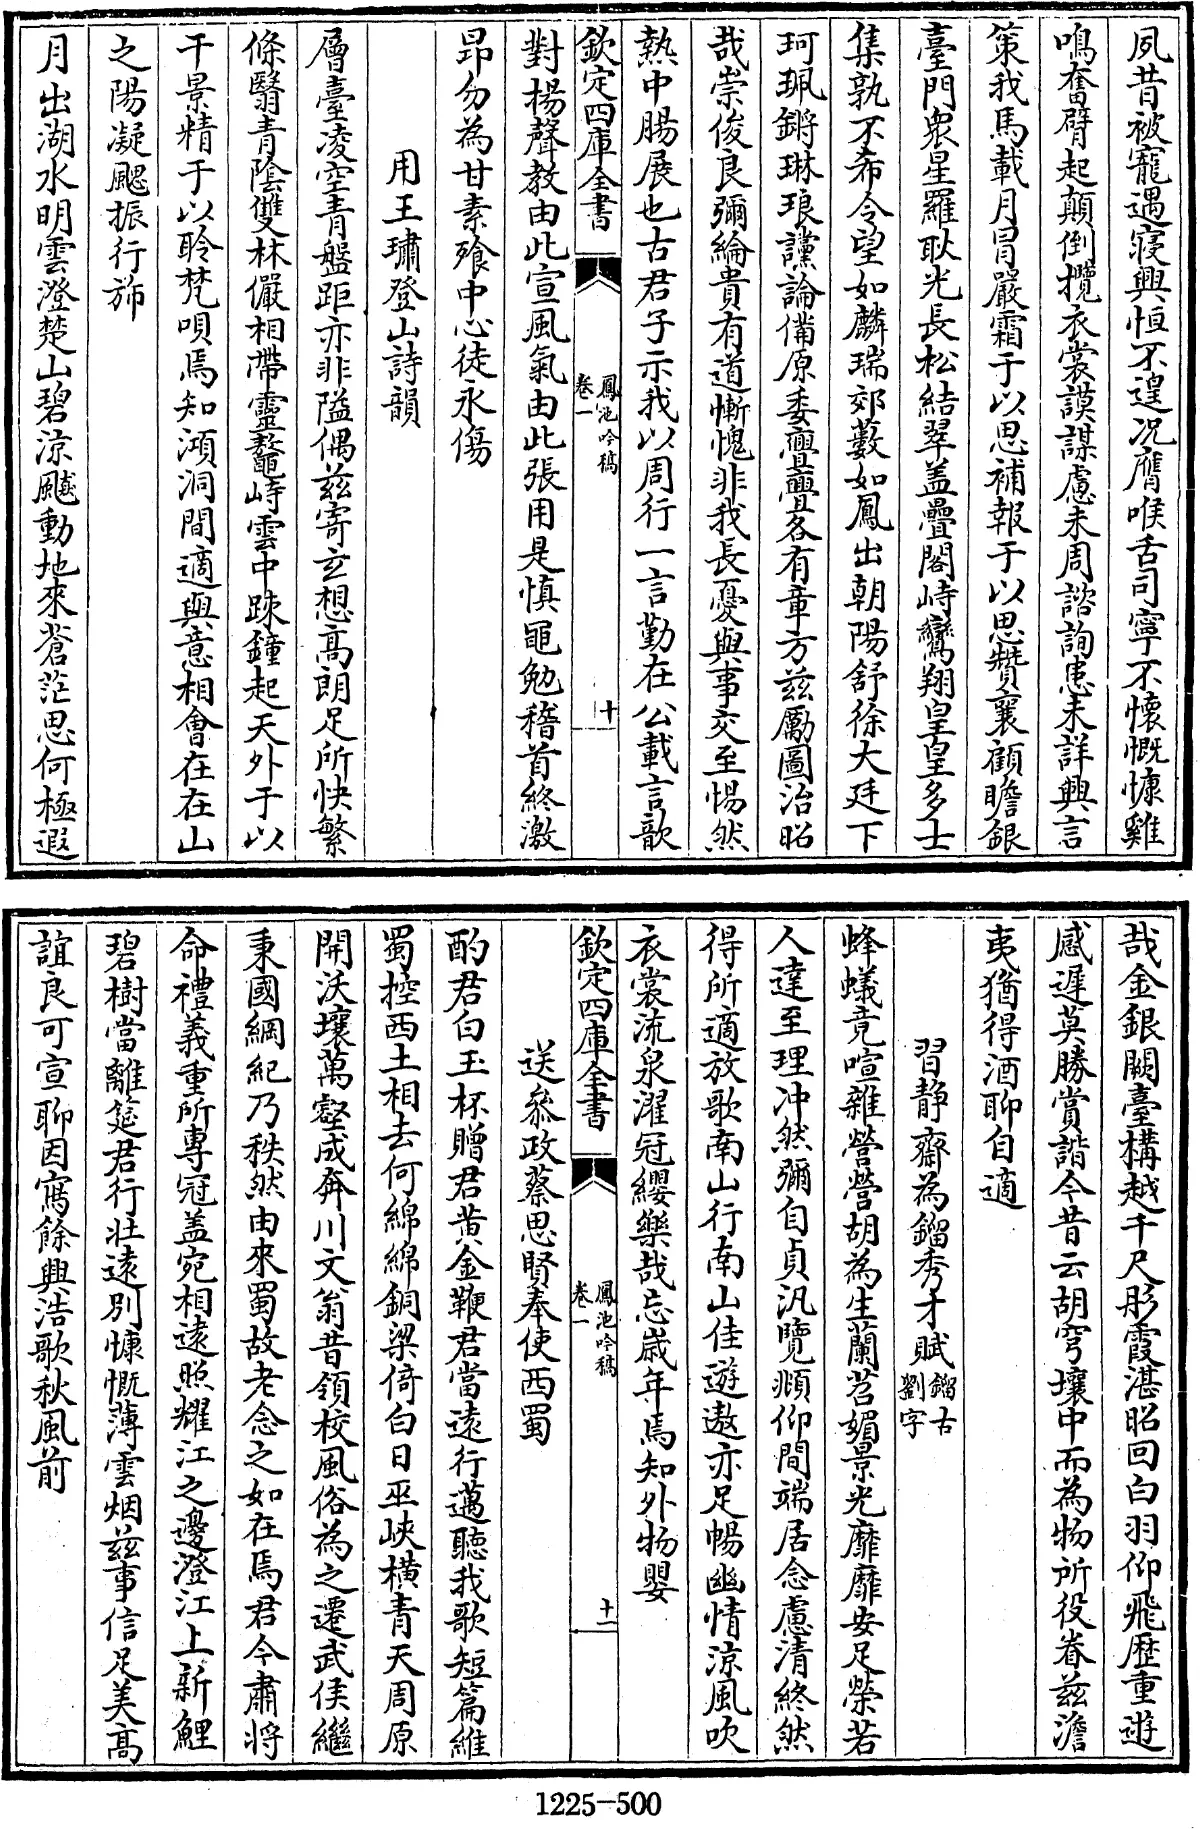 夙昔被寵遇寢興恒不遑况膺喉舌司寧不懷慨慷雞
鳴奮臂起顛倒攬衣裳謨謀慮未周諮詢患未詳興言
策我馬載月冒嚴霜于以思補報于以思贊襄顧瞻銀
臺門衆星羅耿光長松結翠盖疊閣峙鸞翔皇皇多士
集孰不希令望如麟瑞郊藪如鳳出朝陽舒徐大廷下
珂珮鏘琳琅讜論備原委亹亹各有章方兹勵圖治昭
哉崇俊良彌綸貴有道慚愧非我長憂與事交至惕然
熱中腸展也古君子示我以周行一言勤在公載言歌
欽定四庫全書
鳳池吟稿
卷一
十
對揚聲教由此宣風氣由此張用是慎黽勉稽首終激
昻勿為甘素飱中心徒永傷
用王璛登山詩韻
層臺凌空青盤距亦非隘偶兹寄玄想高朗足所快繁
條翳青陰雙林儼相帶靈鼇峙雲中踈鐘起天外于以
干景精于以聆梵唄焉知澒洞間適與意相會在在山
之陽凝颸振行斾
月出湖水明雲澄楚山碧涼飈動地來蒼茫思何極遐
哉金銀闕臺構越千尺彤霞湛昭回白羽仰飛歴重遊
感遲莫勝賞諧今昔云胡穹壤中而為物所役眷兹澹
夷猶得酒聊自適
習靜齋為鎦秀才賦
鎦古
劉字
蜂蟻竟喧雜營營胡為生蘭苕媚景光靡靡安足榮若
人達至理冲然彌自貞汎覽頫仰間端居念慮清終然
得所適放歌南山行南山佳遊遨亦足暢幽情涼風吹
衣裳流泉濯冠纓樂哉忘歲年焉知外物嬰
欽定四庫全書
鳳池吟稿
卷一
十一
送叅政蔡思賢奉使西蜀
酌君白玉杯贈君黄金鞭君當遠行邁聽我歌短篇維
蜀控西土相去何綿綿銅梁倚白日巫峽横青天周原
開沃壤萬壑成奔川文翁昔領校風俗為之遷武侯繼
秉國綱紀乃秩然由來蜀故老念之如在焉君今肅将
命禮義重所專冠盖宛相逺照耀江之邊澄江上新鯉
碧樹當離筵君行壯逺别慷慨薄雲烟兹事信足美高
誼良可宣聊因寫餘興浩歌秋風前
1225-500